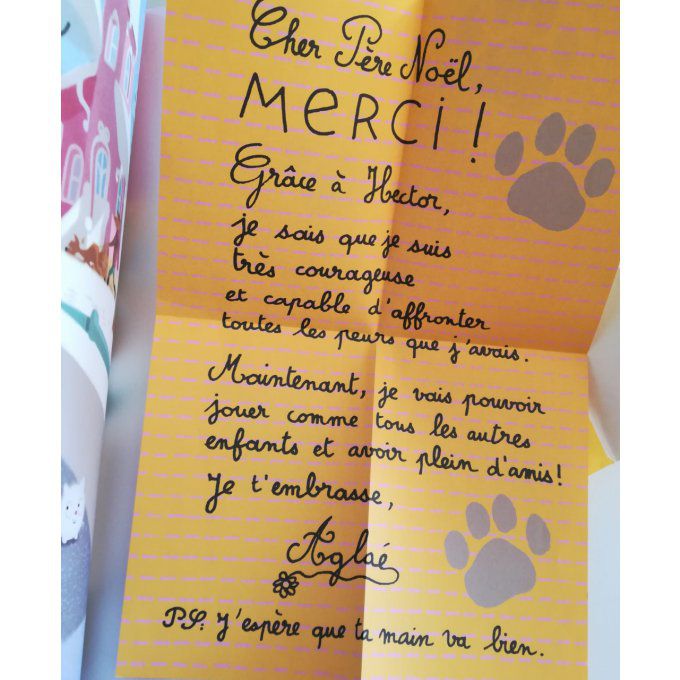 Cher Père Noël,
MERCI !
Grâce à Hector,
je sais que je suis
très courageuse
et capable d'affronter
toutes les peurs que j'avais.
Maintenant, je vais pouvoir
jouer comme tous les autres
enfants et avoir plein d'amis !
Je t'embrasse,
Aglaé
PS: J'espère que ta main va bien.